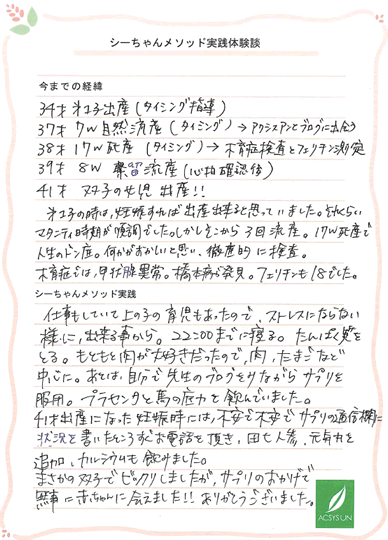 シーちゃんメソッド実践体験談
今までの経緯
34才 第1子出産(タイミング指導)
37才 7W 自然流産(タイミング)→アクシスアンとブログに出会う
38才 17W死産(タイミング)→不育症検査とフェリチン測定
39才 8W 稽留流産(心拍確認後)
41才 双子の女児 出産!!
第1子の時は、妊娠すれば出産出来ると思っていました。それくらい
マタニティ時期が順調でした。しかしそこから3回流産。17W死産で
人生のドン底。何かがおかしいと思い、徹底的に検査。
不育症では、甲状腺異常。橋本病が発見。フェリチンも18でした。
シーちゃんメソッド実践
仕事もしていて上の子の育児もあったので、ストレスにならない
様に、出来る事から。22:00までに寝る。たんぱく質を
とる。もともと肉が大好きだったので、肉、たまごなど
中心に。あとは、自分で先生のブログをみながらサプリを
服用。プラセンタと萬の底力を飲んでいました。
41才出産になった妊娠時には、不安で不安でサプリの通信欄に
状況を書いたところお電話を頂き、田七人参、元気力を
追加、カルシウムも飲みました。
まさかの双子でビックリしましたが、サプリのおかげで
無事に赤ちゃんに会えました!! ありがとうございました。
ACSYSUN